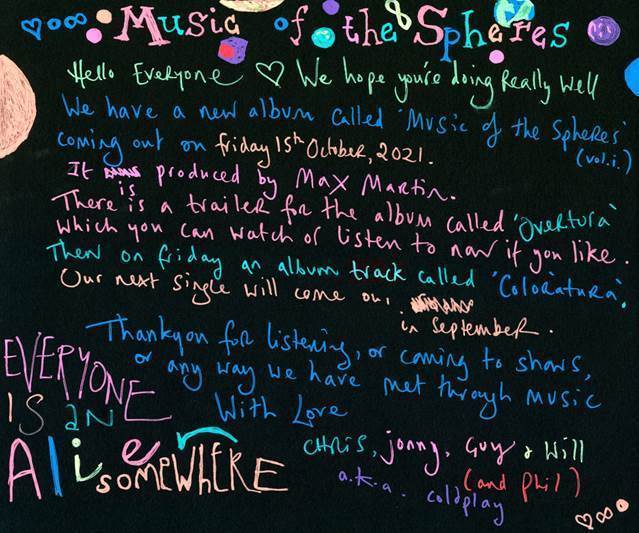 Music of the Spheres
Hello Everyone ♡ We hope you're doing Really Well
We have a new album called 'Music of the Spheres'
(vol.i.)
coming out on friday 15th October, 2021.
It is produced by Max Martin.
There is a trailer for the album called 'Overtura'
which you can watch or listen to now if you like.
Then on friday an album track called 'Coloratura'.
Our next single will come out
in September.
Thankyou for listening, or coming to shows,
or any way we have met through music
With Love
EVERYONE
IS an
Alien
somewHERE
CHRIS, jonny, Guy & Will
(and Phil)
a.k.a. coldplay